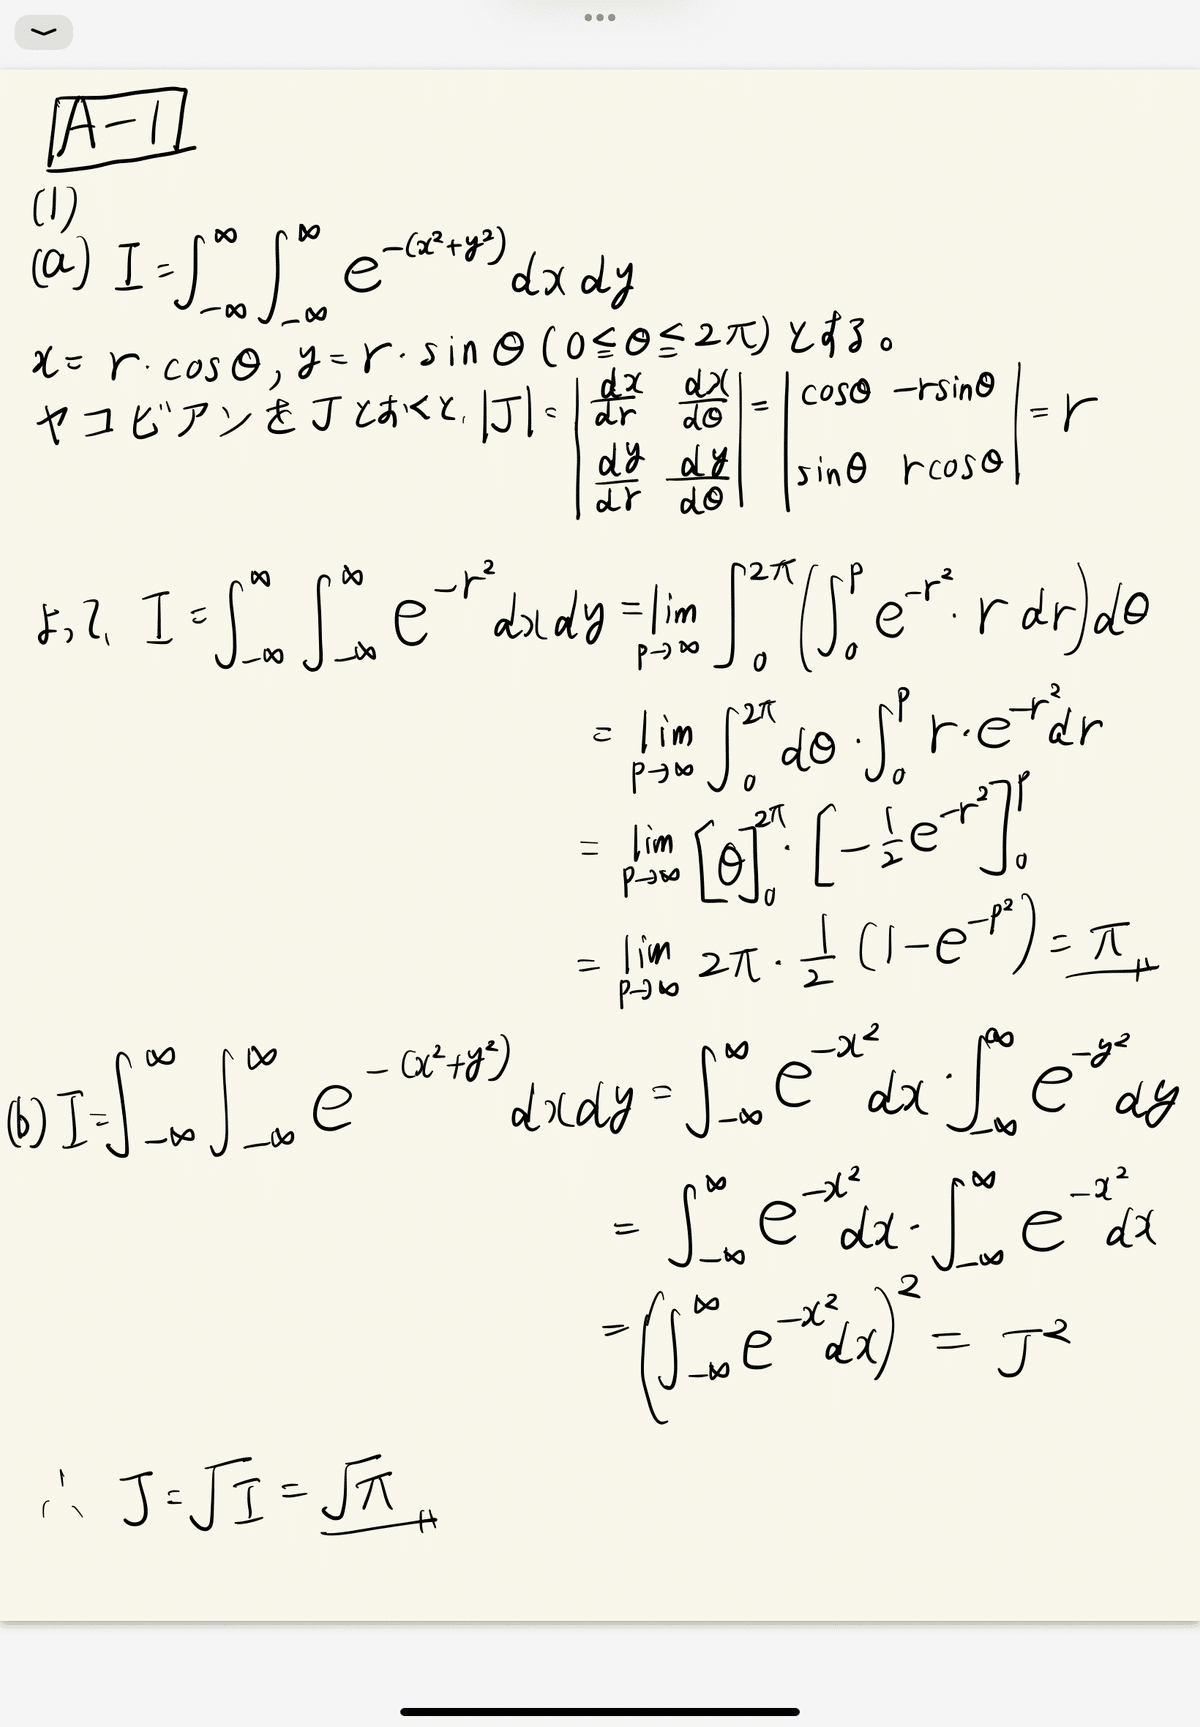 A-1
(1)
(a) I = ∫_{-∞}^{∞} ∫_{-∞}^{∞} e^{-(x²+y²)} dx dy
x = r・cosθ, y = r・sinθ (0≦θ≦2π) とする。
ヤコビアンをJとおくと, |J| = | dx/dr dx/dθ ; dy/dr dy/dθ | = | cosθ -rsinθ ; sinθ rcosθ | = r
よって、 I = ∫_{-∞}^{∞} ∫_{-∞}^{∞} e^{-r²} dx dy = lim_{p→∞} ∫_0^{2π} (∫_0^p e^{-r²}・r dr) dθ
= lim_{p→∞} ∫_0^{2π} dθ・∫_0^p r・e^{-r²} dr
= lim_{p→∞} [θ]_0^{2π}・[-1/2 e^{-r²}]_0^p
= lim_{p→∞} 2π・1/2 (1-e^{-p²}) = π
(b) I = ∫_{-∞}^{∞} ∫_{-∞}^{∞} e^{-(x²+y²)} dx dy = ∫_{-∞}^{∞} e^{-x²} dx・∫_{-∞}^{∞} e^{-y²} dy
= ∫_{-∞}^{∞} e^{-x²} dx・∫_{-∞}^{∞} e^{-x²} dx
= (∫_{-∞}^{∞} e^{-x²} dx)² = J²
∴ J = √I = √π